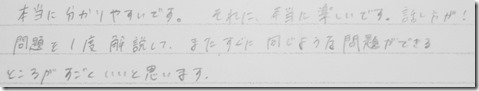 本当に分かりやすいです。 それに、本当に楽しいです。話したが!
問題を1度解説して、またすぐに同じような問題ができる
ところがすごくいいと思います。